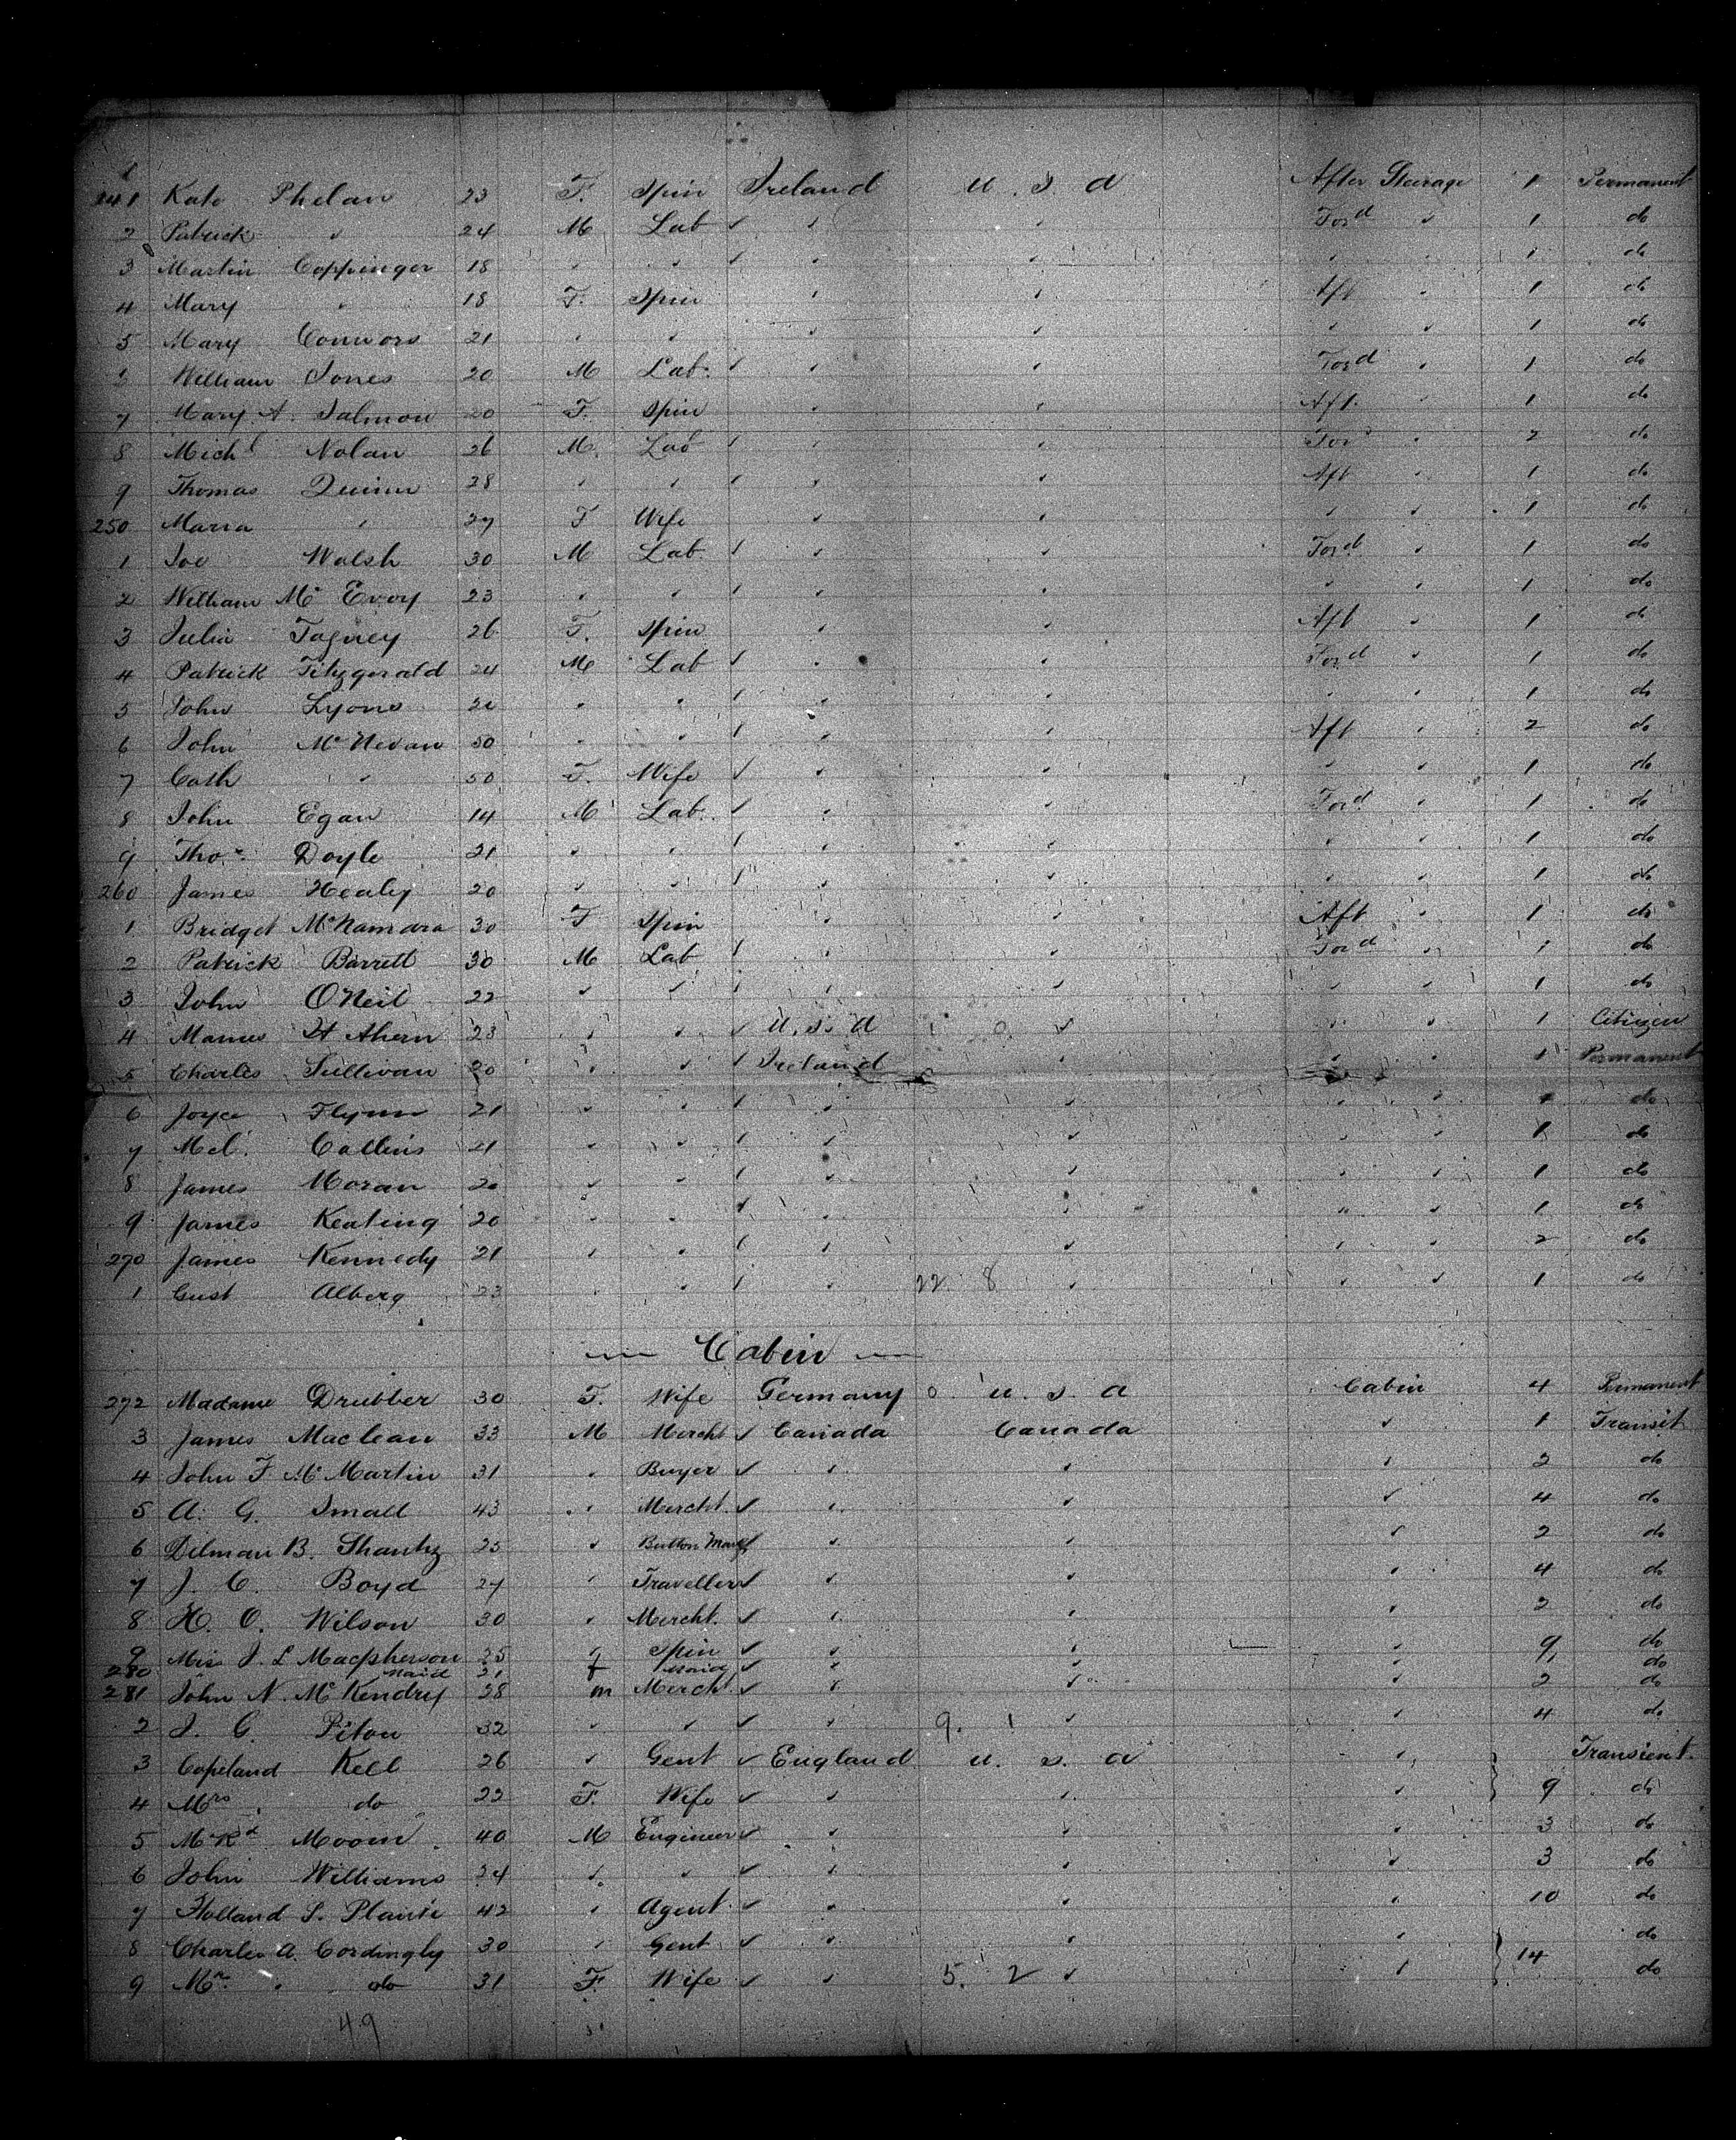 241 Kate Phelan 23 F. Spin Ireland U.S.A After Steerage 1 Permanent
2 Patrick " 24 M Lab " " Ford " 1 do
3 Martin Coppinger 18 " " " " " " 1 do
4 Mary " 18 F. Spin " " Aft " 1 do
5 Mary Connors 21 " " " " " " 1 do
6 William Jones 20 M Lab. " " Ford " 1 do
7 Mary A. Salmon 20 F. Spin " " Aft. " 1 do
8 Michl Nolan 26 M. Lab " " Ford " 2 do
9 Thomas Quinn 28 " " " " Aft " 1 do
250 Maria " 27 F Wife " " " " 1 do
1 Joe Walsh 30 M Lab " " Ford " 1 do
2 William Mc Evoy 23 " " " " " " 1 do
3 Julia Tagney 26 F. Spin " " Aft " 1 do
4 Patrick Fitzgerald 24 M Lab " " Ford " 1 do
5 John Lyons " " " " " " 1 do
6 John Mc Nevan 50 " " " " Aft " 2 do
7 Cath " 50 F. Wife " " " " 1 do
8 John Egan 14 M Lab. " " Ford " 1 do
9 Thos Doyle 21 " " " " " " 1 do
260 James Healy 20 " " " " " " 1 do
1 Bridget McNamara 30 F Spin " " Aft " 1 do
2 Patrick Barrett 30 M Lab " " Ford " 1 do
3 John O'Neil 22 " " " " " " 1 do
4 H Ahern 23 " " U.S.A 1 0 " " " 1 Citizen
5 Charles Sullivan 20 " " Ireland " " " 1 Permanent
6 Joyce Flynn 21 " " " " " " 1 do
7 Collins 21 " " " " " " 1 do
8 James Moran 20 " " " " " " 1 do
9 James Keating 20 " " " " " " 1 do
270 James Kennedy 21 " " " " " " 2 do
1 Gust Alberg 23 " " " 22 8 " " " 1 do
Cabin
272 Madame Drubber 30 F. Wife Germany 0 U.S.A Cabin 4 Permanent
3 James Maclean 33 M Mercht Canada Canada " 1 Transit
4 John F Mc Martin 31 " Buyer " " " 2 do
5 A. G. Small 43 " Mercht. " " " 4 do
6 Dilman B. Shantz 25 " Button Manf " " " 2 do
7 J. C. Boyd 27 " Traveller " " " 4 do
8 H. O. Wilson 30 " Mercht. " " " 2 do
9 Miss J. L Macpherson 25 " Spin " " " 9 do
280 " maid 21 f maid " " " do
281 John N. Mc Kendry 28 m Mercht. " " " 2 do
2 J. G. Piton 32 " " " 9. 1 " " 4 do
3 Copeland Kell 26 " Gent England U.S.A " Transient.
4 Mrs. do 22 F. Wife " " " 9 do
5 Moom 40 M Engineer " " " 3 do
6 John Williams 34 " " " " " 3 do
7 Holland S. 42 " Agent. " " " 10 do
8 Charles A. Cordingly 30 " Gent " " " do
9 Mrs " do 31 F. Wife " 5. 2 " " 14 do
49